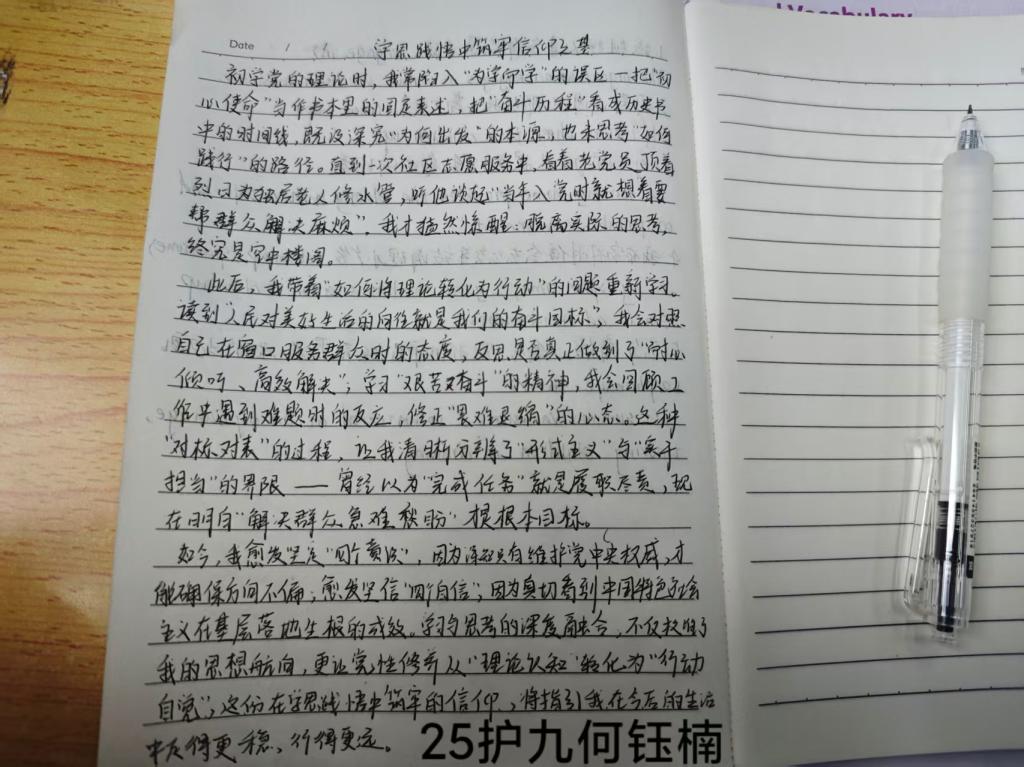 Date /
学思践悟中筑牢信仰之基
初学党的理论时，我常陷入"为学而学"的误区—把"初
心使命"当作书本里的固定表述，把"奋斗历程"看成历史书
中的时间线，既没深究"为何出发"的本源，也未思考"如何
践行"的路径。直到一次社区志愿服务中，看着老党员顶着
烈日为独居老人修水管，听他谈起"当年入党时就想着要
帮群众解决麻烦"，我才猛然惊醒：脱离实际的思考，
终究是空中楼阁。
此后，我带着"如何将理论转化为行动"的问题重新学习。
读到"人民对美好生活的向往就是我们的奋斗目标"，我会对照
自己在窗口服务群众时的态度，反思是否真正做到了"耐心
倾听、高效解决"；学习"艰苦奋斗"的精神，我会回顾工
作中遇到难题时的反应，修正"畏难退缩"的心态。这种
"对标对表"的过程，让我清晰分辨了"形式主义"与"实干
担当"的界限——曾经以为"完成任务"就是履职尽责，现
在明白"解决群众急难愁盼"才是根本目标。
如今，我愈发坚定"四个意识"，因为深知只有维护党中央权威，才
能确保方向不偏；愈发坚信"四个自信"；因为真切看到中国特色社会
主义在基层落地生根的成效。学习与思考的深度融合，不仅校准了
我的思想航向，更让党性修养从"理论认知"转化为"行动
自觉"；这份在学思践悟中筑牢的信仰，将指引我在今后的生活
中走得更稳、行得更远。
25护九何钰楠
Vocabulary